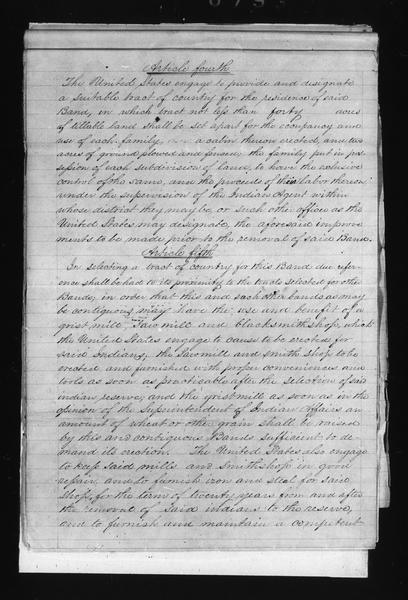 Article fourth
The United States engage to provide and designate
a suitable tract of country for the residence of said
Band, in which tract not less than forty acres
of tillable land shall be set apart for the occupancy and
use of each family, a cabin thereon erected, and two
acres of ground plowed and fenced, the family put in pos-
session of each subdivision of land, to have the exclusive
control of the same, and the proceeds of their labor thereon
under the supervision of the Indian Agent within
whose district they may be, or such other officer as the
United States may designate, the aforesaid improve
ments to be made prior to the removal of said Band.
Article fifth
In selecting a tract of country for this Band due refer-
ence shall be had to its proximity to the tracts selected for other
Bands, in order that this and such other bands as may
be contiguous may have the use and benefit of a
grist mill, Saw mill and blacksmith shop, which
the United States engage to cause to be erected for
said Indians, the Sawmill and smith shop to be
erected and furnished with proper conveniences and
tools as soon as practicable after the selection of said
indian reserve, and the gristmill as soon as in the
opinion of the Superintendent of Indian Affairs an
amount of wheat or other grain shall be raised
by this and contiguous Bands sufficient to de-
mand its erection. The United States also engage
to keep said mills and Smithshop in good
repair, and to furnish iron and steel for said
shop, for the term of twenty years from and after
the removal of said indians to the reserve,
and to furnish and maintain a competent